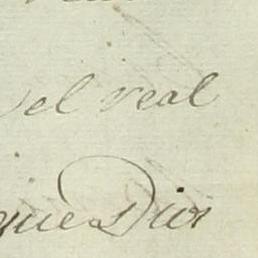 el real
que Dios